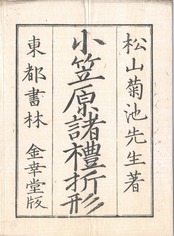 松山菊池先生著
小笠原諸禮折形
東都書林 金幸堂版